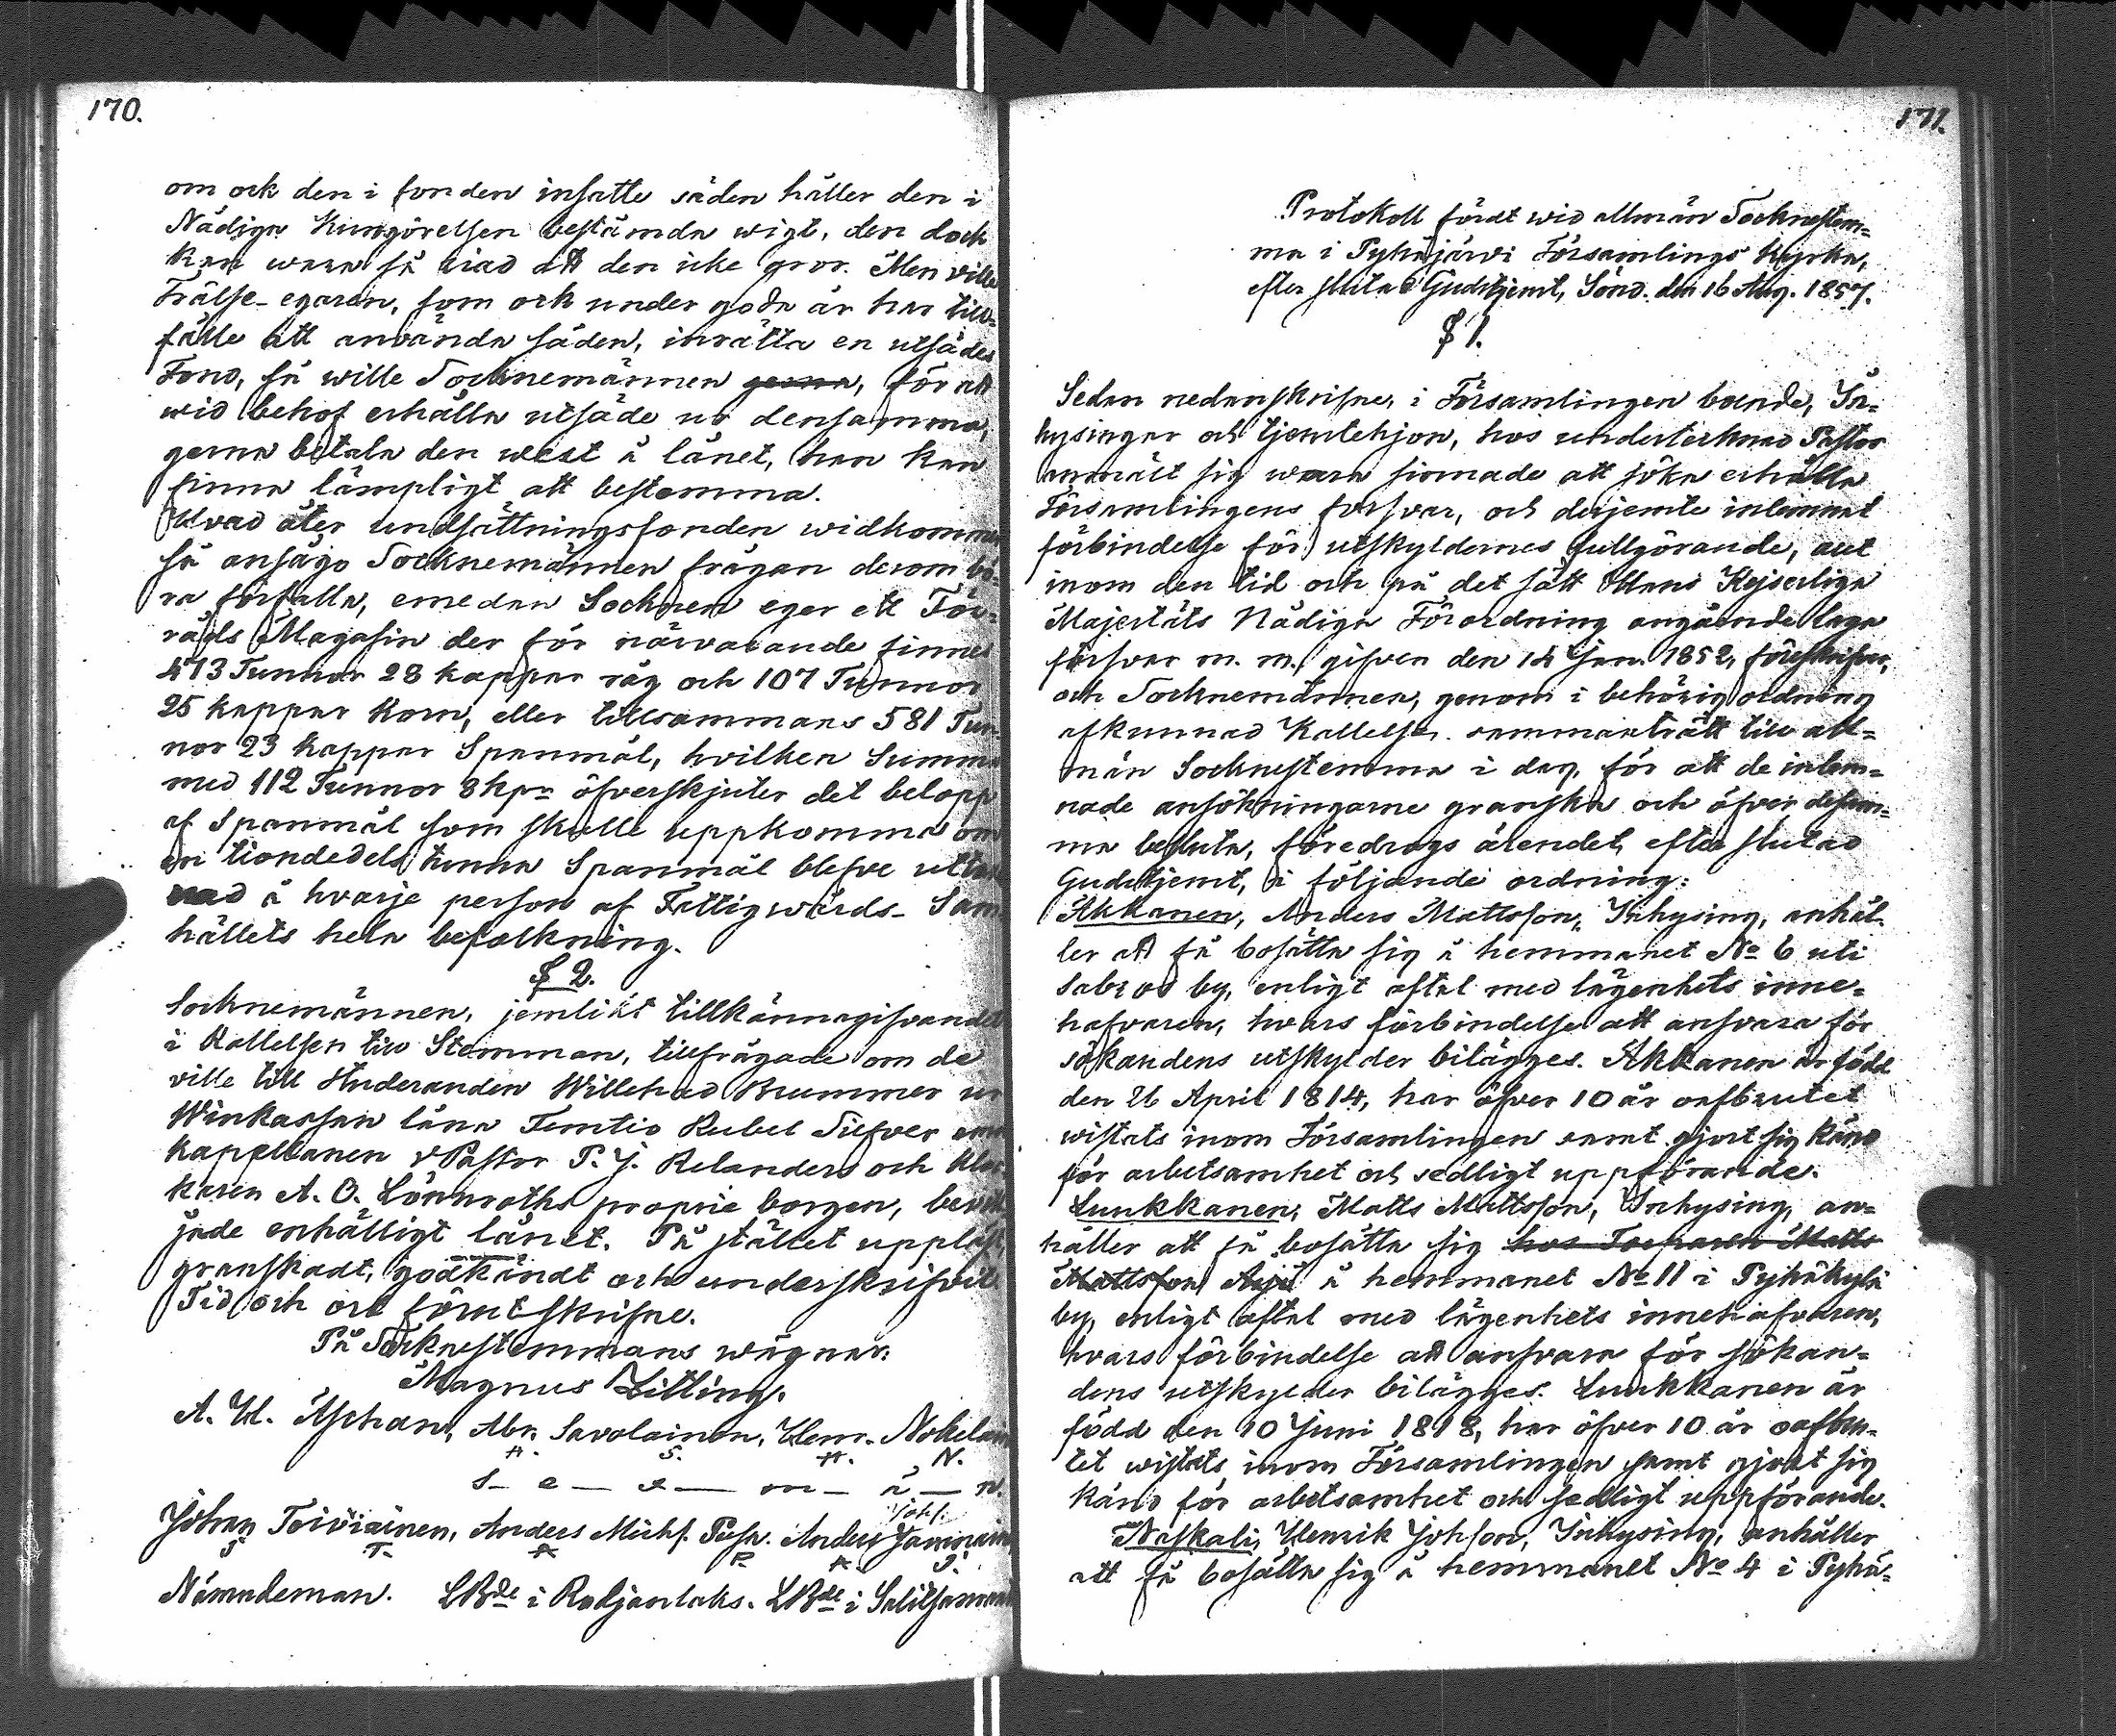 170.
om ock den i fonden insatte säden håller den i
Nådiga Kungörelsen bestämda wigt, den dock
kan wara så ... att den icke gror. Men wille
Frälse-egaren, som ock under goda år har till-
fälle att använda säden, inrätta en utsädes
Fond, så wille Socknemännen gerna, för att
wid behof erhålla utsäde ur densamma,
gerna betala den wext å lånet, han kan
finna lämpligt att bestemma.
Hvad åter undsättningsfonden widkommer
så ansågo Socknemännen frågan derom bö-
ra förfalla, emedan Socknen eger ett För-
råds Magasin der för närvarande finnes
473 Tunnor 28 kappar råg och 107 Tunnor
25 kappar korn, eller tillsammans 581 Tun-
nor 23 kappar Spanmål, hvilken Summa
med 112 Tunnor 8 kpr öfverskjuter det belopp
af Spanmål som skulle uppkomma om
en tiondedels tunna Spanmål blefve utta-
xad å hvarje person af Fattigwårds-Sam-
hällets hela befolkning.
§ 2.
Socknemännen, jemlikt tillkännagifvandet
i Kallelsen till Stemman, tillfrågade om de
ville till Studeranden Willehad Brummer ur
Winkassan låna Femtio Rubel Silfver emot
Kapellanen v Pastor P. J. Relanders och Kloc-
karen A. O. Lönnroths proprie borgen, bevil-
jade enhälligt lånet. På stället uppläst,
granskadt, godkändt och underskrifvit.
Tid och ort förutskrifne.
På Socknestemmans wägnar:
Magnus Lilling.
A. H. Äschan, Abr. Savolainen, Henr. Nokelain
H. S. H. N.
S - e - x - m - ä - n.
Johs.
Johan Toiviainen, Anders Michs. Pusa. Anders Jamnain
J. T. A P A. J.
Nämndeman. LBde i Radjanlaks. LBde i Salitsanranta
171.
Protokoll fördt wid allmän Socknestem-
ma i Pyhäjärvi Församlings Kyrka,
efter slutad Gudstjenst, Sönd. den 16 Aug. 1857.
§ 1.
Sedan nedanskrifne, i Församlingen boende, In-
hysingar och tjenstehjon, hos undertecknad Pastor
anmält sig wara sinnade att söka erhålla
Församlingens försvar, och derjemte inlemnat
förbindelse för utskyldernes fullgörande, allt
inom den tid och på det sätt Hans Kejserliga
Majestäts Nådiga Förordning angående laga
försvar m. m. gifven den 14 Jan. 1852, föreskrifver,
och Socknemännen, genom i behörig ordning
afkunnad Kallelse sammanträtt till all-
män Socknestemma i dag, för att de inlem-
nade ansökningarne granska och öfver desam-
ma besluta, föredrogs ärendet, efter slutad
Gudstjenst, i följande ordning:
Akkanen, Anders Mattsson, Inhysing, anhål-
ler att få bosätta sig å hemmanet No 6 uti
Salzoo by, enligt aftal med lägenhets inne-
hafvaren, hvars förbindelse att ansvara för
sökandens utskylder bilägges. Akkanen är född
den 26 April 1814, har öfver 10 år oafbrutet
wistats inom Församlingen samt gjort sig känd
för arbetsamhet och sedligt uppförande.
Luukkanen, Matts Mattsson, Inhysing, an-
håller att få bosätta sig hos Torparen Matts
Mattsson Äijö å hemmanet No 11 i Pyhäkylä
by, enligt aftal med lägenhets innehafvaren,
hvars förbindelse att ansvara för sökan-
dens utskylder bilägges. Luukkanen är
född den 10 Juni 1818, har öfver 10 år oafbru-
tet wistats inom Församlingen samt gjort sig
känd för arbetsamhet och sedligt uppförande.
Naskali, Henrik Johsson, Inhysing, anhåller
att få bosätta sig å hemmanet No 4 i Pyhä-